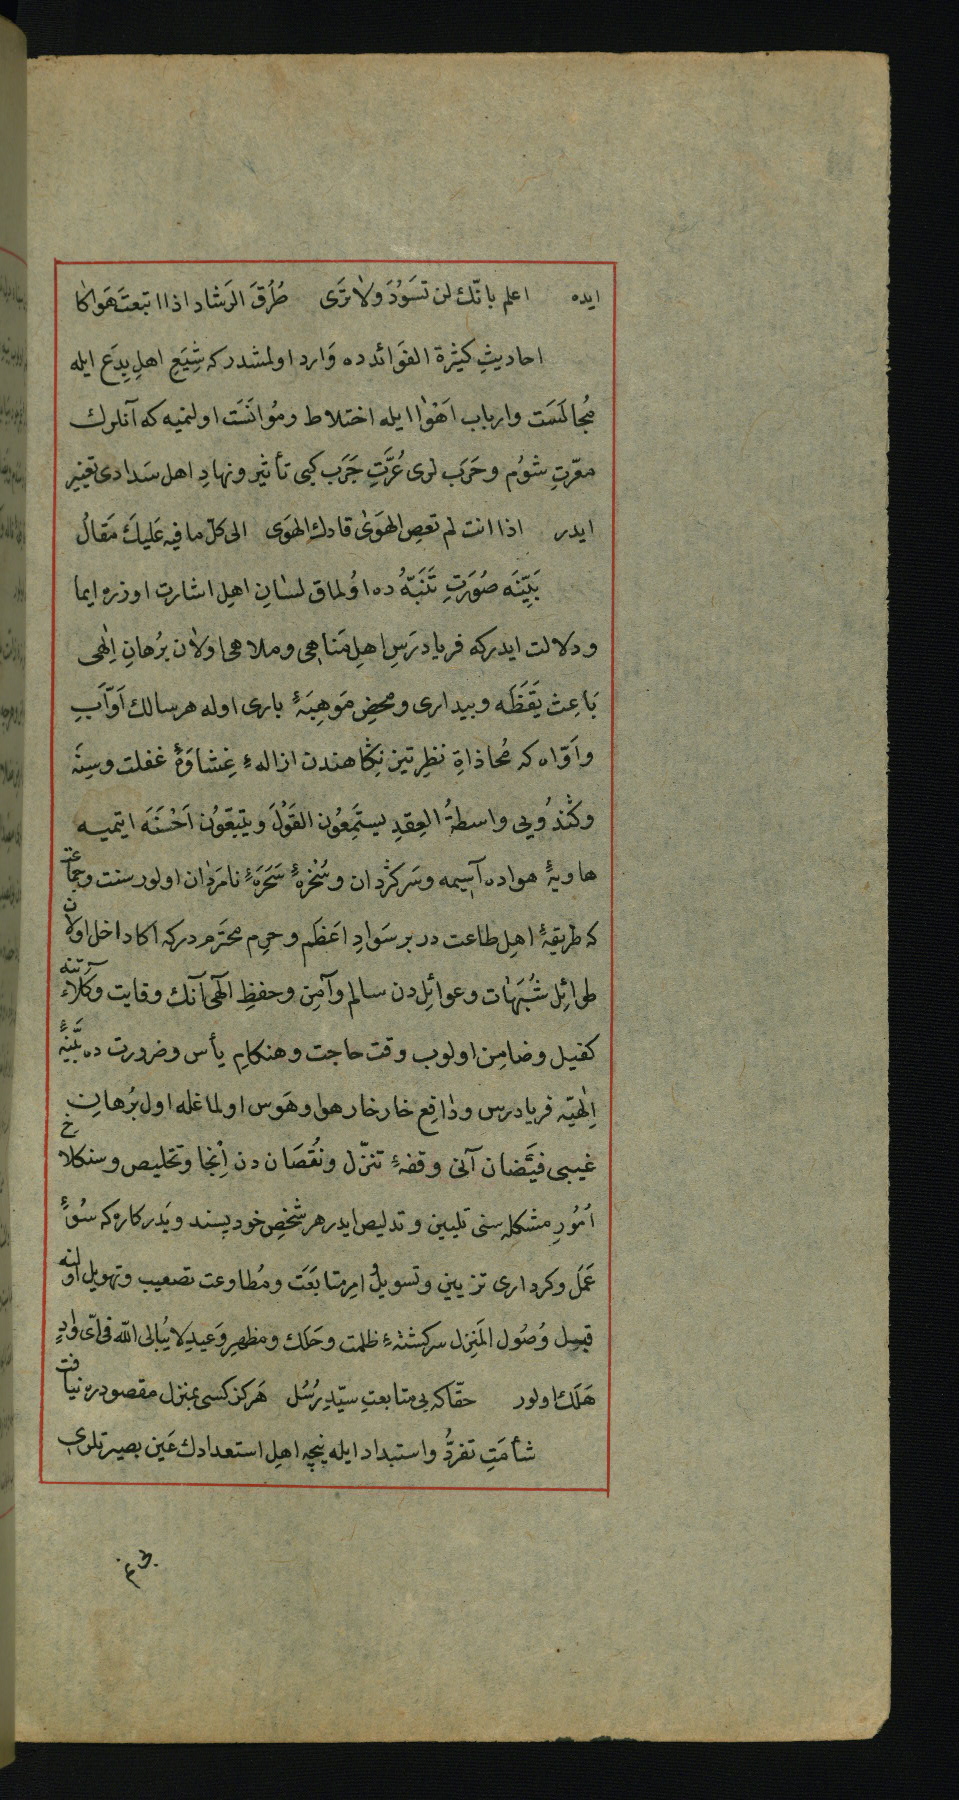 ایده اعلم بانّك لن تَسَوُدَ ولا تَرَی طُرُقَ الرَشاد اذا اتبعتَ هَواكا
احادیثِ كثیرة الفَوائدده وَارد اولمشدر كه شِیَعِ اهلِ بِدَع ایله
مُجالَسَت وارباب اَهْوَا ایله اختلاط ومُوانَسَت اولنمیه كه آنلرك
معرّتِ شوُم وحَرَب لری عُرَّتِ جَرَب كبی تأثیر ونهادِ اهل سَدادی تغییر
ایدر اذا انت لم تعصِ الهَوَیٰ قادك الهَوَی الی كلّ ما فیه عَلیكَ مَقالُ
بَیِّنَه صُورَتِ تَنَبُّه ده اوُلماق لسانِ اهلِ اشارت اوزره ایما
ودلالت ایدركه فریادرَسِ اهلِ مَناهِی وملاهی اولان بُرْهانِ اِلٰهی
بَاعِث یَقَظَه وبیداری ومحضِ مَوهِبَۀ باری اوله هر سالك اَوّابِ
واَوّاه كه مُحاذاةِ نظرِ تیز نِكٰاهندن ازالهء غِشاوَۀ غفلت وسِنَه
وكُنْدُویی واسطةُ العِقدِ یستَمِعوُن القَوْلَ ویتبَعّوُن اَحْسَنَه ایتمیه
هاویۀ هواده آسیمه وسَركَرْدان وسُخْرۀ سَحَرَۀ نامَردان اولور سنت وجماعت
كه طریقۀ اهلِ طاعت در بر سَوادِ اعظَم وحریم محتَرم دركه اكا داخل اولان
طوائِل شُبَهات وعوائِل دن سالم وآمِن وحفظِ الٰهی آنك وقایت وكَلاءَتنه
كفیل وضامِن اولوب وقت حاجت وهنكامِ یأس وضرورت ده بَیّنَۀ
اِلٰهیّه فریادرس ودافِع خارخار هوا وهَوَس اولماغله اول بُرْهانِ
غیبی فَیَضان آنی وقفهء تنزّل ونُقصَان دن اِنْجا وتخلیص وسنكلاخ
اُمُورِ مشكله سنی تلیین وتدلیص ایدر هر شخصِ خودپسند وبَدركاره كه سُوۀ
عَمَل وكرداری تزیین وتسویل وامرِ متابَعَت ومُطاوعت تصعیب وتهویل اولنه
قبیل وُصُول المَنزل سركشتهء ظلمت وحَلَك ومظهرِ وَعیدِ لا یُبالی الله فی ایّ وادٍ
هَلَك اولور حقّا كه بی متابعتِ سیّدِ رُسُل هَركز كسی بمنزل مقصود ره نیافت
شأمَتِ تفرّدُ واستبداد ایله نیچه اهلِ استعدادك عَین بصیرتلری